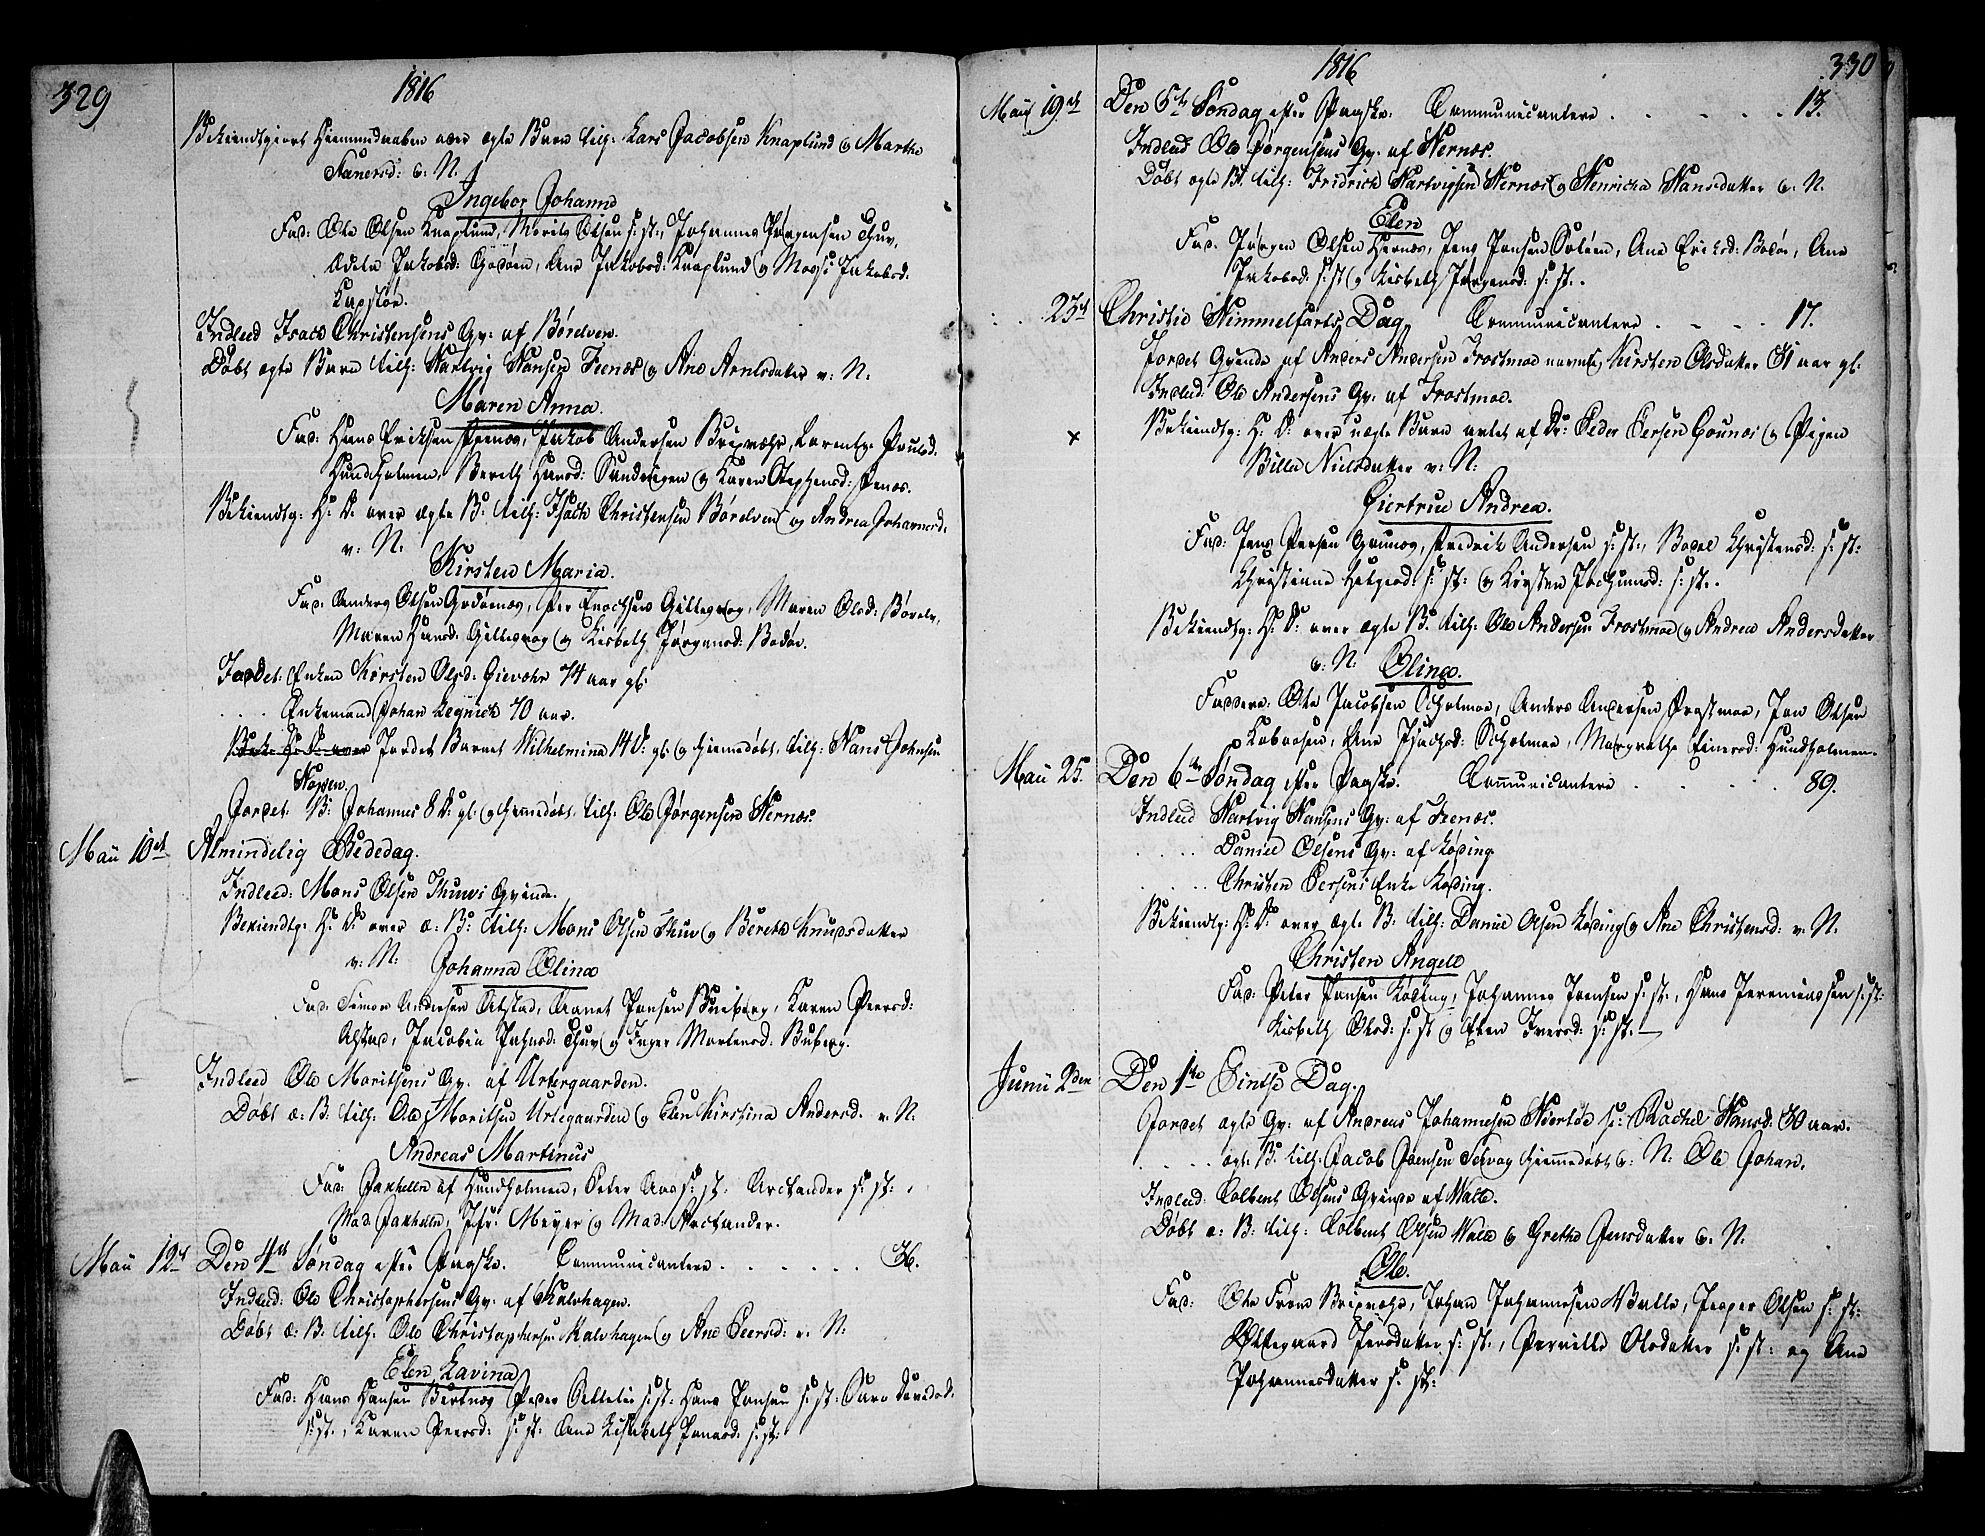 329
1816
Bekiendtgiort Hiemmedaaben over ægte Barn tilh: Lars Jacobsen Knaplund og Marthe
v: N.
Ingebor Johanna
Fad: Ole Olsen Knaplund, Morits Olsen s: st:, Johannes Jørgensen Thuv,
Adelu Jakobsd: Godøen, Ane Jakobsd: Knaplund og Jakobsd:
Indleed Isach Christensens Qv: af Børelven.
Døbt ægte Barn tilh: Hartvig Hansen Feenæs og Ane Arntsdatter v: N.
Maren Anna.
Fad: Hans Eriksen Feenæs, Jakob Andersen Brixvær, Lorents Poulsd.
Hundholmen, Berith Hansd: Sandvigen og Karen Stephensd: Fenæs.
Bekiendtg: H: D: over ægte B: tilh: Isach Christensen Børelven og Andrea Johannesd.
v: N:
Kirsten Maria.
Fad: Anders Olsen Godønæs, Per Enochsen Gillesvog, Maren Olsd: Børelv,
Maren Hansd: Gillesvog og Lisbeth Jørgensd: Bodøe.
Jordet: Enken Kirsten Olsd: Gievær 74 aar gl:
. . . Enkemand Johan 70 aar.
Bek: H: D: over Jordet Barnet Wilhelmina 14 D: gl: og hiemedøbt, tilh: Hans Johnsen
Jordet B: Johannes 8 D: gl: og hiemedøbt, tilh: Ole Jørgensen Hernæs.
Maii 10de Almindelig Bededag.
Indleed: Mons Olsen Thuvs Qvinde.
Bekiendtg: H: D: over æ: B: tilh: Mons Olsen Thuv og Berethe Knudsdatter
v: N: Johanna Olina
Fad: Simon Andersen Alstad, Aanet Jansen Buberg, Karen Peersd:
Alstad, Jacobia Johnsd: Thuv og Inger Mortensd: Buberg.
Indleed Ole Moritsens Qv: af Urtegaarden.
Døbt æ: B: tilh: Ole Moritsen Urtegaarden og Elen Kirstina Andersd. v: N:
Andreas Martinus
Fad: Jakhelln af Hundholmen, Peter Aas s: st: Arctander s: st:
Mad: Jakhelln, Jfr: Meyer og Mad: Arctander.
Maii 12te Den 4de Søndag efter Paaske. Communicantere . . . . . . 36.
Indleed: Ole Christophersens Qv: af Kalvhagen.
Døbt æ: B: tilh: Ole Christophersen Kalvhagen og Ane Peersd: v: N:
Elen Lavina
Fad: Hans Hansen Bertnæs, Peder s: st: Hans Jansen s: st:
s: st:, Karen Peersd: s: st: Ane Lisbeth Jansd: s: st:
330
1816
Maii 19de Den 5te Søndag efter Paaske. Communicantere . . . . . . 13.
Indleed Ole Jørgensens Qv: af Hernæs.
Døbt ægte B: tilh: Fridrich Hartvigsen Hernæs og Henricha Hansdatter v: N.
Elen
Fad: Jørgen Olsen Hernæs, Jens Jansen Soløen, Ane Eriksd: Bodøe, Ane
Jakobsd: s: st og Lisbeth Jørgensd: s: st:.
23de Christie Himmelfarts Dag. Communicantere . . . . 17.
Jordet Qvinde af Anders Andersen Frostmoe navnl: Kirsten Olsdatter 31 aar gl:
Indleed: Ole Andersens Qv: af Frostmoe.
× Bekiendtg: H: D: over uægte Barn avlet af Dr: Peder Persen Gounæs og Pigen
Billa Nielsdatter v: N:
Giertrue Andrea.
Fad: Jens Persen Gounæs, Fredrik Andersen s: st:, Bodel Christensd: s: st:
Christianna s: st: og Kirsten Jochumsd: s: st:.
Bekiendtg: H: D: over ægte B: tilh: Ole Andersen Frostmoe og Andrea Andersdatter
v: N: Olina.
Faddere: Ole Jacobsen Scholmoe, Anders Andersen Frostmoe, Jon Olsen
Kobaasen, Ane Isachsd: Scholmoe, Margrethe Einersd: Hundholmen.
Maii 25. Den 6te Søndag efter Paaske. Communicantere . . . . . 89.
Indleed Hartvig Hansens Qv: af Feenæs.
. . . . Daniel Olsens Qv: af Løding
. . . . Christen Persens Enke Løding.
Bekiendtg: H: D: over ægte B: tilh: Daniel Olsen Løding og Ane Christensd: v: N.
Christen Angell
Fad: Peter Jansen Løding, Johannes Joensen s: st:, Hans Jeremiassen s: st:
Lisbeth Olsd: s: st og Elen Iversd: s: st:
Junii 2den Den 1ste Pintse Dag.
Jordet ægte Qv: af Andreas Johannesen s: Rachel Hansd: 30 aar.
. . . . ægte B: tilh: Jacob Joensen Selvog hiemedøbt v: N: Ole Johan.
Indleed: Colbent Olsens Qvinde af Walle.
Døbt æ: B: tilh: Colbent Olsen Walle og Grethe Jensdatter v: N.
Ole.
Fad: Ole Brixvær, Johan Johannesen Walle, Jesper Olsen s: st:
Ollegaard s: st:, Pernille Olsdatter s: st: og Ane
Johannesdatter s: st: